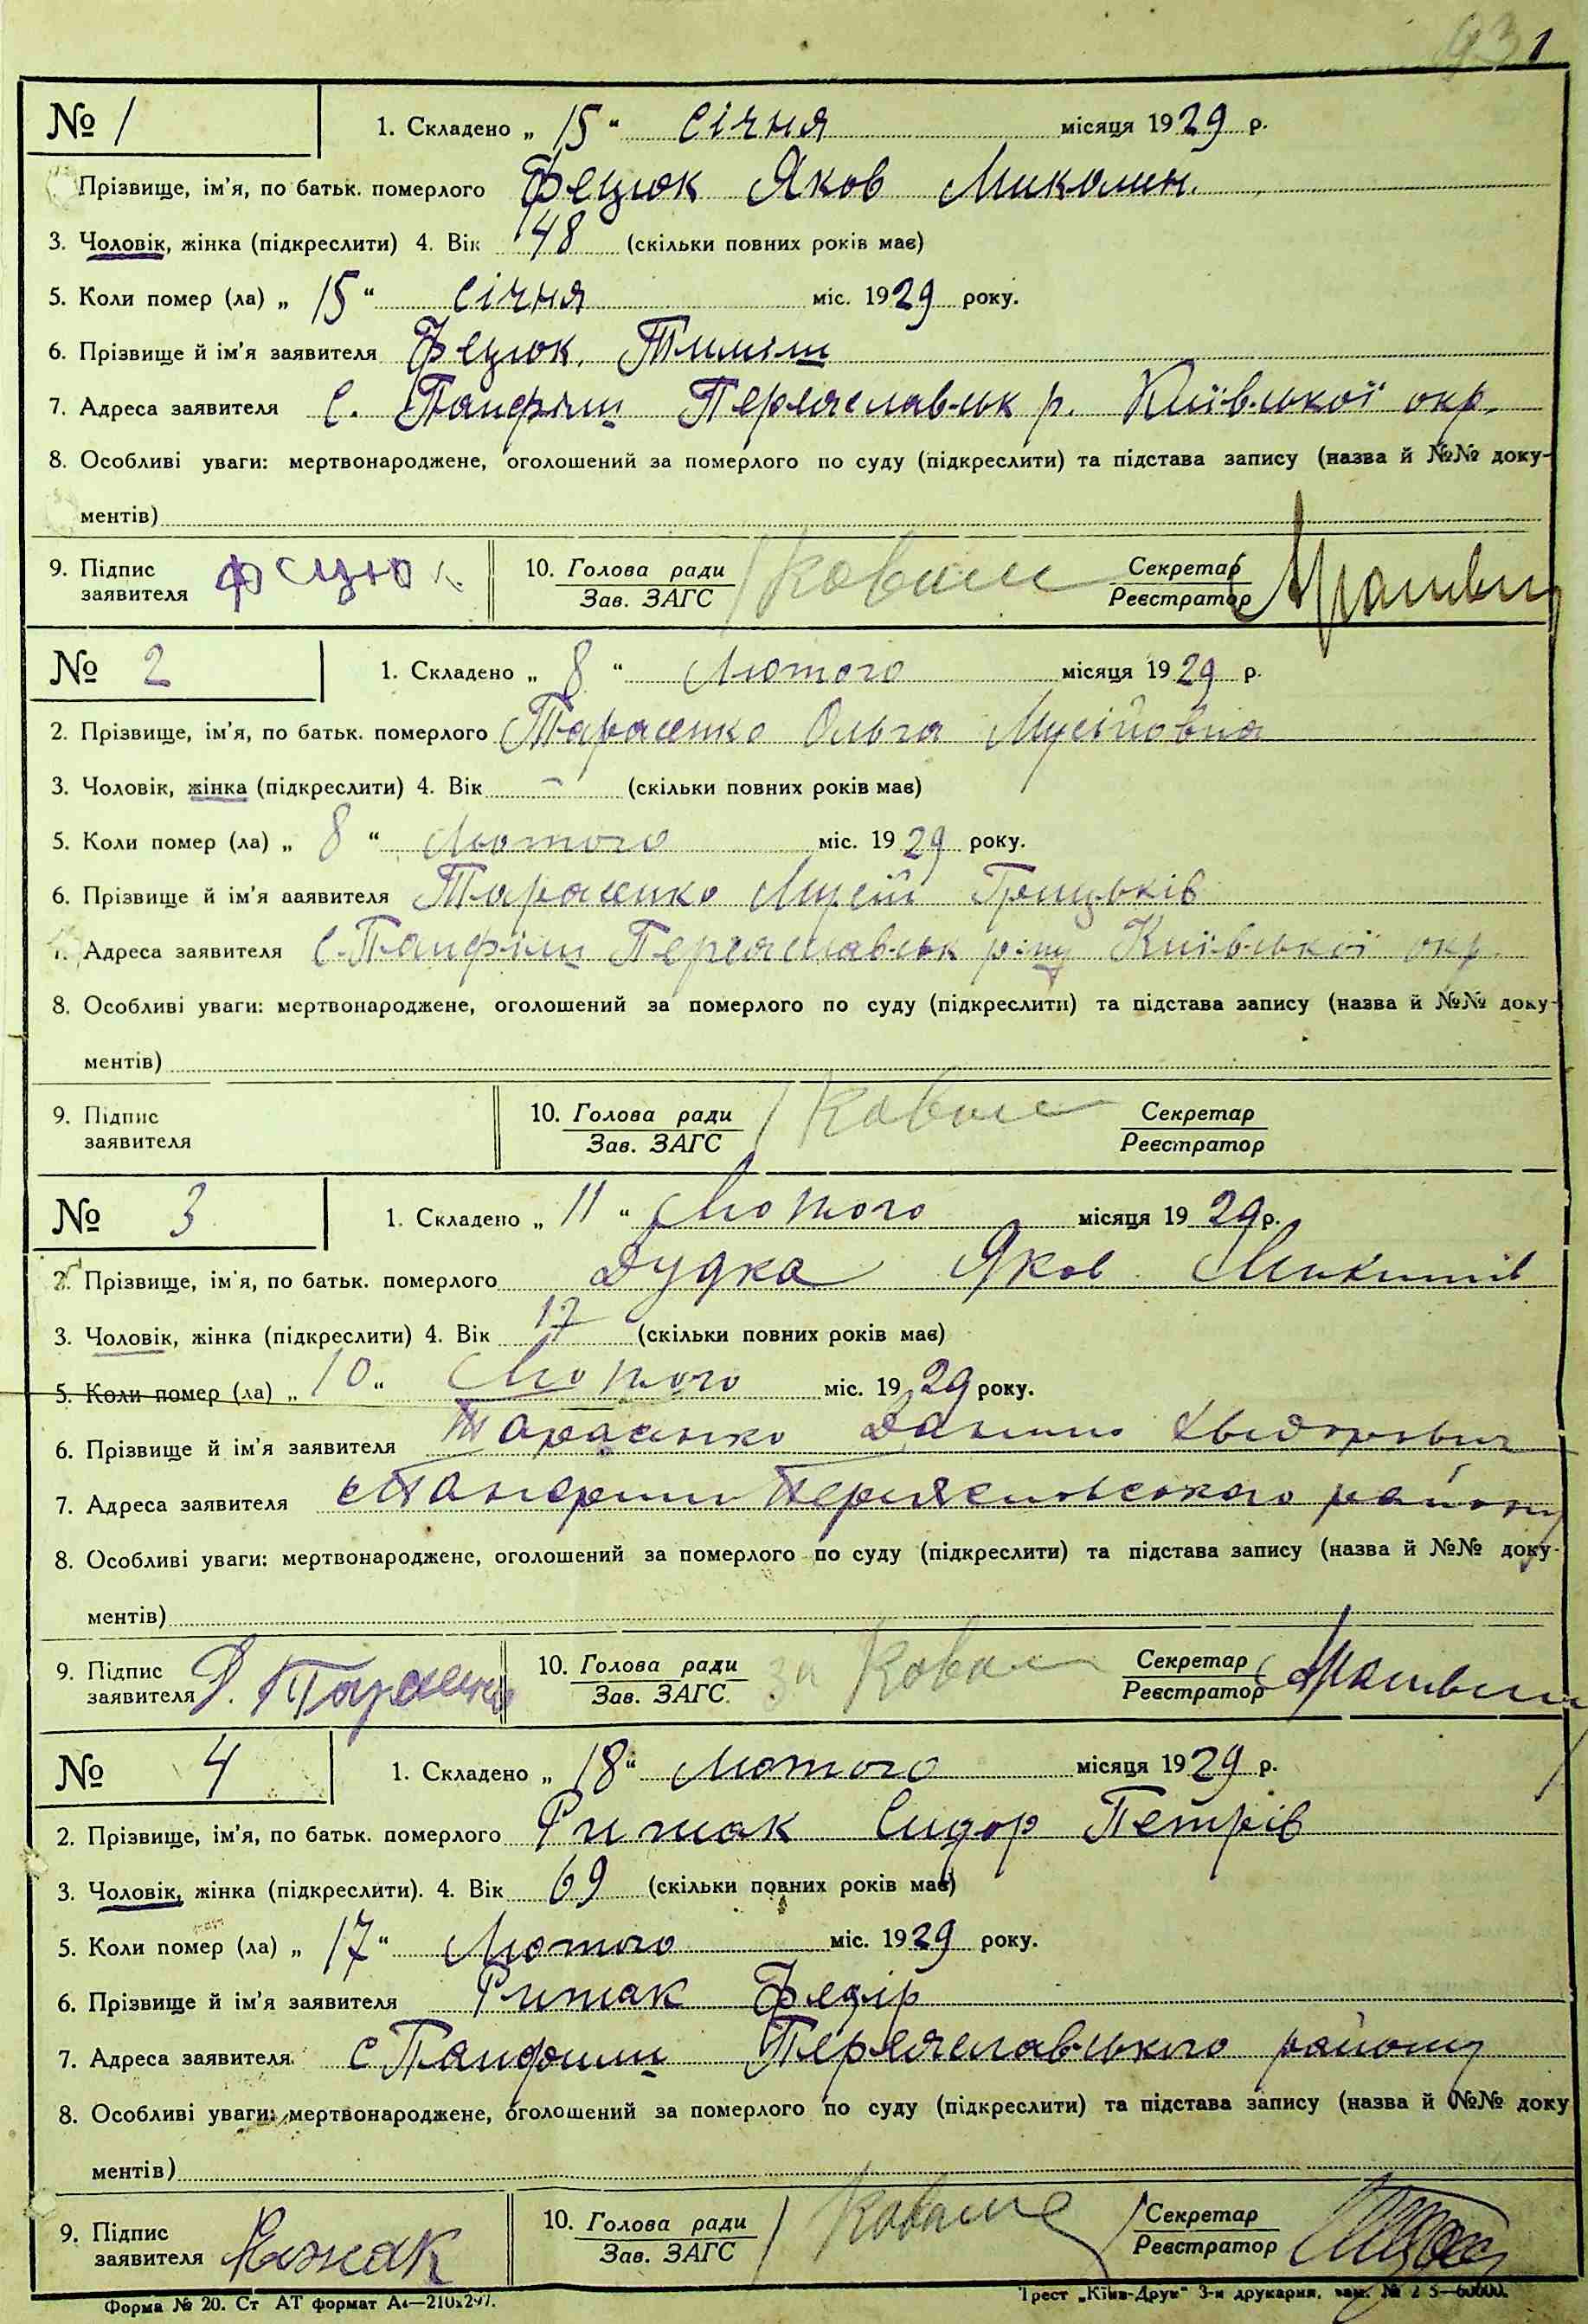 1
№ 1 1. Складено „ 15 “ січня місяця 1929 р.
Прізвище, ім'я, по батьк. померлого Фецюк Яков Миколин.
3. Чоловік, жінка (підкреслити) 4. Вік 48 (скільки повних років має)
5. Коли помер (ла) „ 15 “ січня міс. 1929 року.
6. Прізвище й ім'я заявителя Фецюк. Тиміш
7. Адреса заявителя с. Панфіли Переяславськ р. Київської окр.
8. Особливі уваги: мертвонароджене, оголошений за померлого по суду (підкреслити) та підстава запису (назва й №№ доку-
ментів)
9. Підпис заявителя Фецюк 10. Голова ради Зав. ЗАГС Коваль Секретар Реєстратор
№ 2 1. Складено „ 8 “ Лютого місяця 1929 р.
2. Прізвище, ім'я, по батьк. померлого Тарасенко Ольга Мусійовна
3. Чоловік, жінка (підкреслити) 4. Вік – (скільки повних років має)
5. Коли помер (ла) „ 8 “ Лютого міс. 1929 року.
6. Прізвище й ім'я заявителя Тарасенко Мусій Грицьків
7. Адреса заявителя с. Панфіли Переяславськ р-ну Київської окр.
8. Особливі уваги: мертвонароджене, оголошений за померлого по суду (підкреслити) та підстава запису (назва й №№ доку-
ментів)
9. Підпис заявителя 10. Голова ради Зав. ЗАГС Коваль Секретар Реєстратор
№ 3 1. Складено „ 11 “ Лютого місяця 1929 р.
2. Прізвище, ім'я, по батьк. померлого Дудка Яков Микитів
3. Чоловік, жінка (підкреслити) 4. Вік 17 (скільки повних років має)
5. Коли помер (ла) „ 10 “ Лютого міс. 1929 року.
6. Прізвище й ім'я заявителя Тарасенко Данило Хведорович
7. Адреса заявителя с Панфили Переяславського району
8. Особливі уваги: мертвонароджене, оголошений за померлого по суду (підкреслити) та підстава запису (назва й №№ доку-
ментів)
9. Підпис заявителя Д. Тарасенко 10. Голова ради Зав. ЗАГС. за Коваль Секретар Реєстратор
№ 4 1. Складено „ 18 “ Лютого місяця 1929 р.
2. Прізвище, ім'я, по батьк. померлого Рижак Сидор Петрів
3. Чоловік, жінка (підкреслити). 4. Вік 69 (скільки повних років має)
5. Коли помер (ла) „ 17 “ Лютого міс. 1929 року.
6. Прізвище й ім'я заявителя Рижак Федір
7. Адреса заявителя. с Панфили Переяславського району
8. Особливі уваги: мертвонароджене, оголошений за померлого по суду (підкреслити) та підстава запису (назва й №№ доку
ментів)
9. Підпис заявителя Рижак 10. Голова ради Зав. ЗАГС Коваль Секретар Реєстратор
Форма № 20. Ст АТ формат А₄—210х297. Трест „Київ-Друк“ 3-я друкарня,